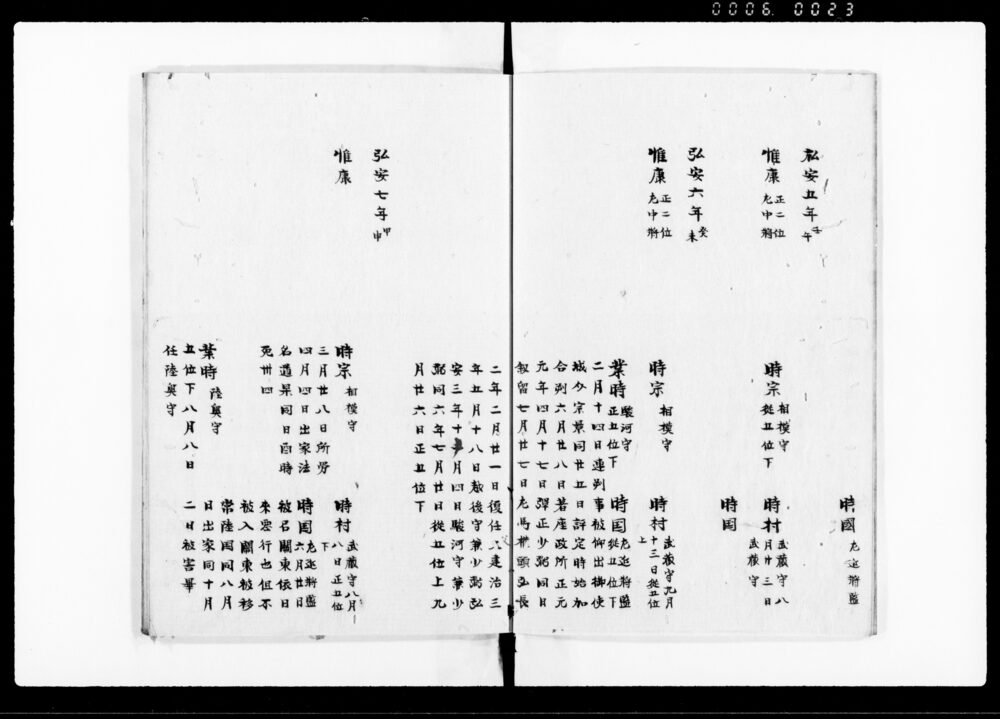 0006. 0023
時國 左近將監
弘安五年 壬午
惟康 正二位 左中將
時宗 相模守 從五位下
時村 武藏守 八月廿三日 武藏守
時国
弘安六年 癸未
惟康 正二位 左中將
時宗 相模守
時村 武藏守 九月十三日從五位上
業時 駿河守 正五位下
時国 左近將監 從五位下
二月十四日連判事被仰出御使
城介宗景同廿五日評定時始加
合判六月廿八日若座政所正元
元年四月十七日彈正少弼同日
叙留七月廿七日左馬權頭弘長
二年二月廿一日復任文建治三
年五月十八日越後守兼少弼弘
安三年十一月四日駿河守兼少
弼同六年七月廿日從五位上九
月廿六日正五位下
弘安七年 甲申
惟康
時宗 相模守
三月廿八日所労
四月四日出家法
名道杲同日酉時
死卅四
時村 武藏守 八月八日正五位下
時国 左近將監 六月廿日
被召關東依日
來悪行也但不
被入關東被移
常陸国同八月
日出家同十月
二日被害畢
業時 陸奥守
五位下八月八日
任陸奥守